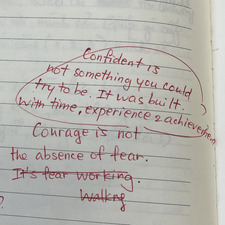 Confident is
not something you could
try to be. It was built.
With time, experience & achievement
Courage is not
the absence of fear.
It's fear working.
Walking